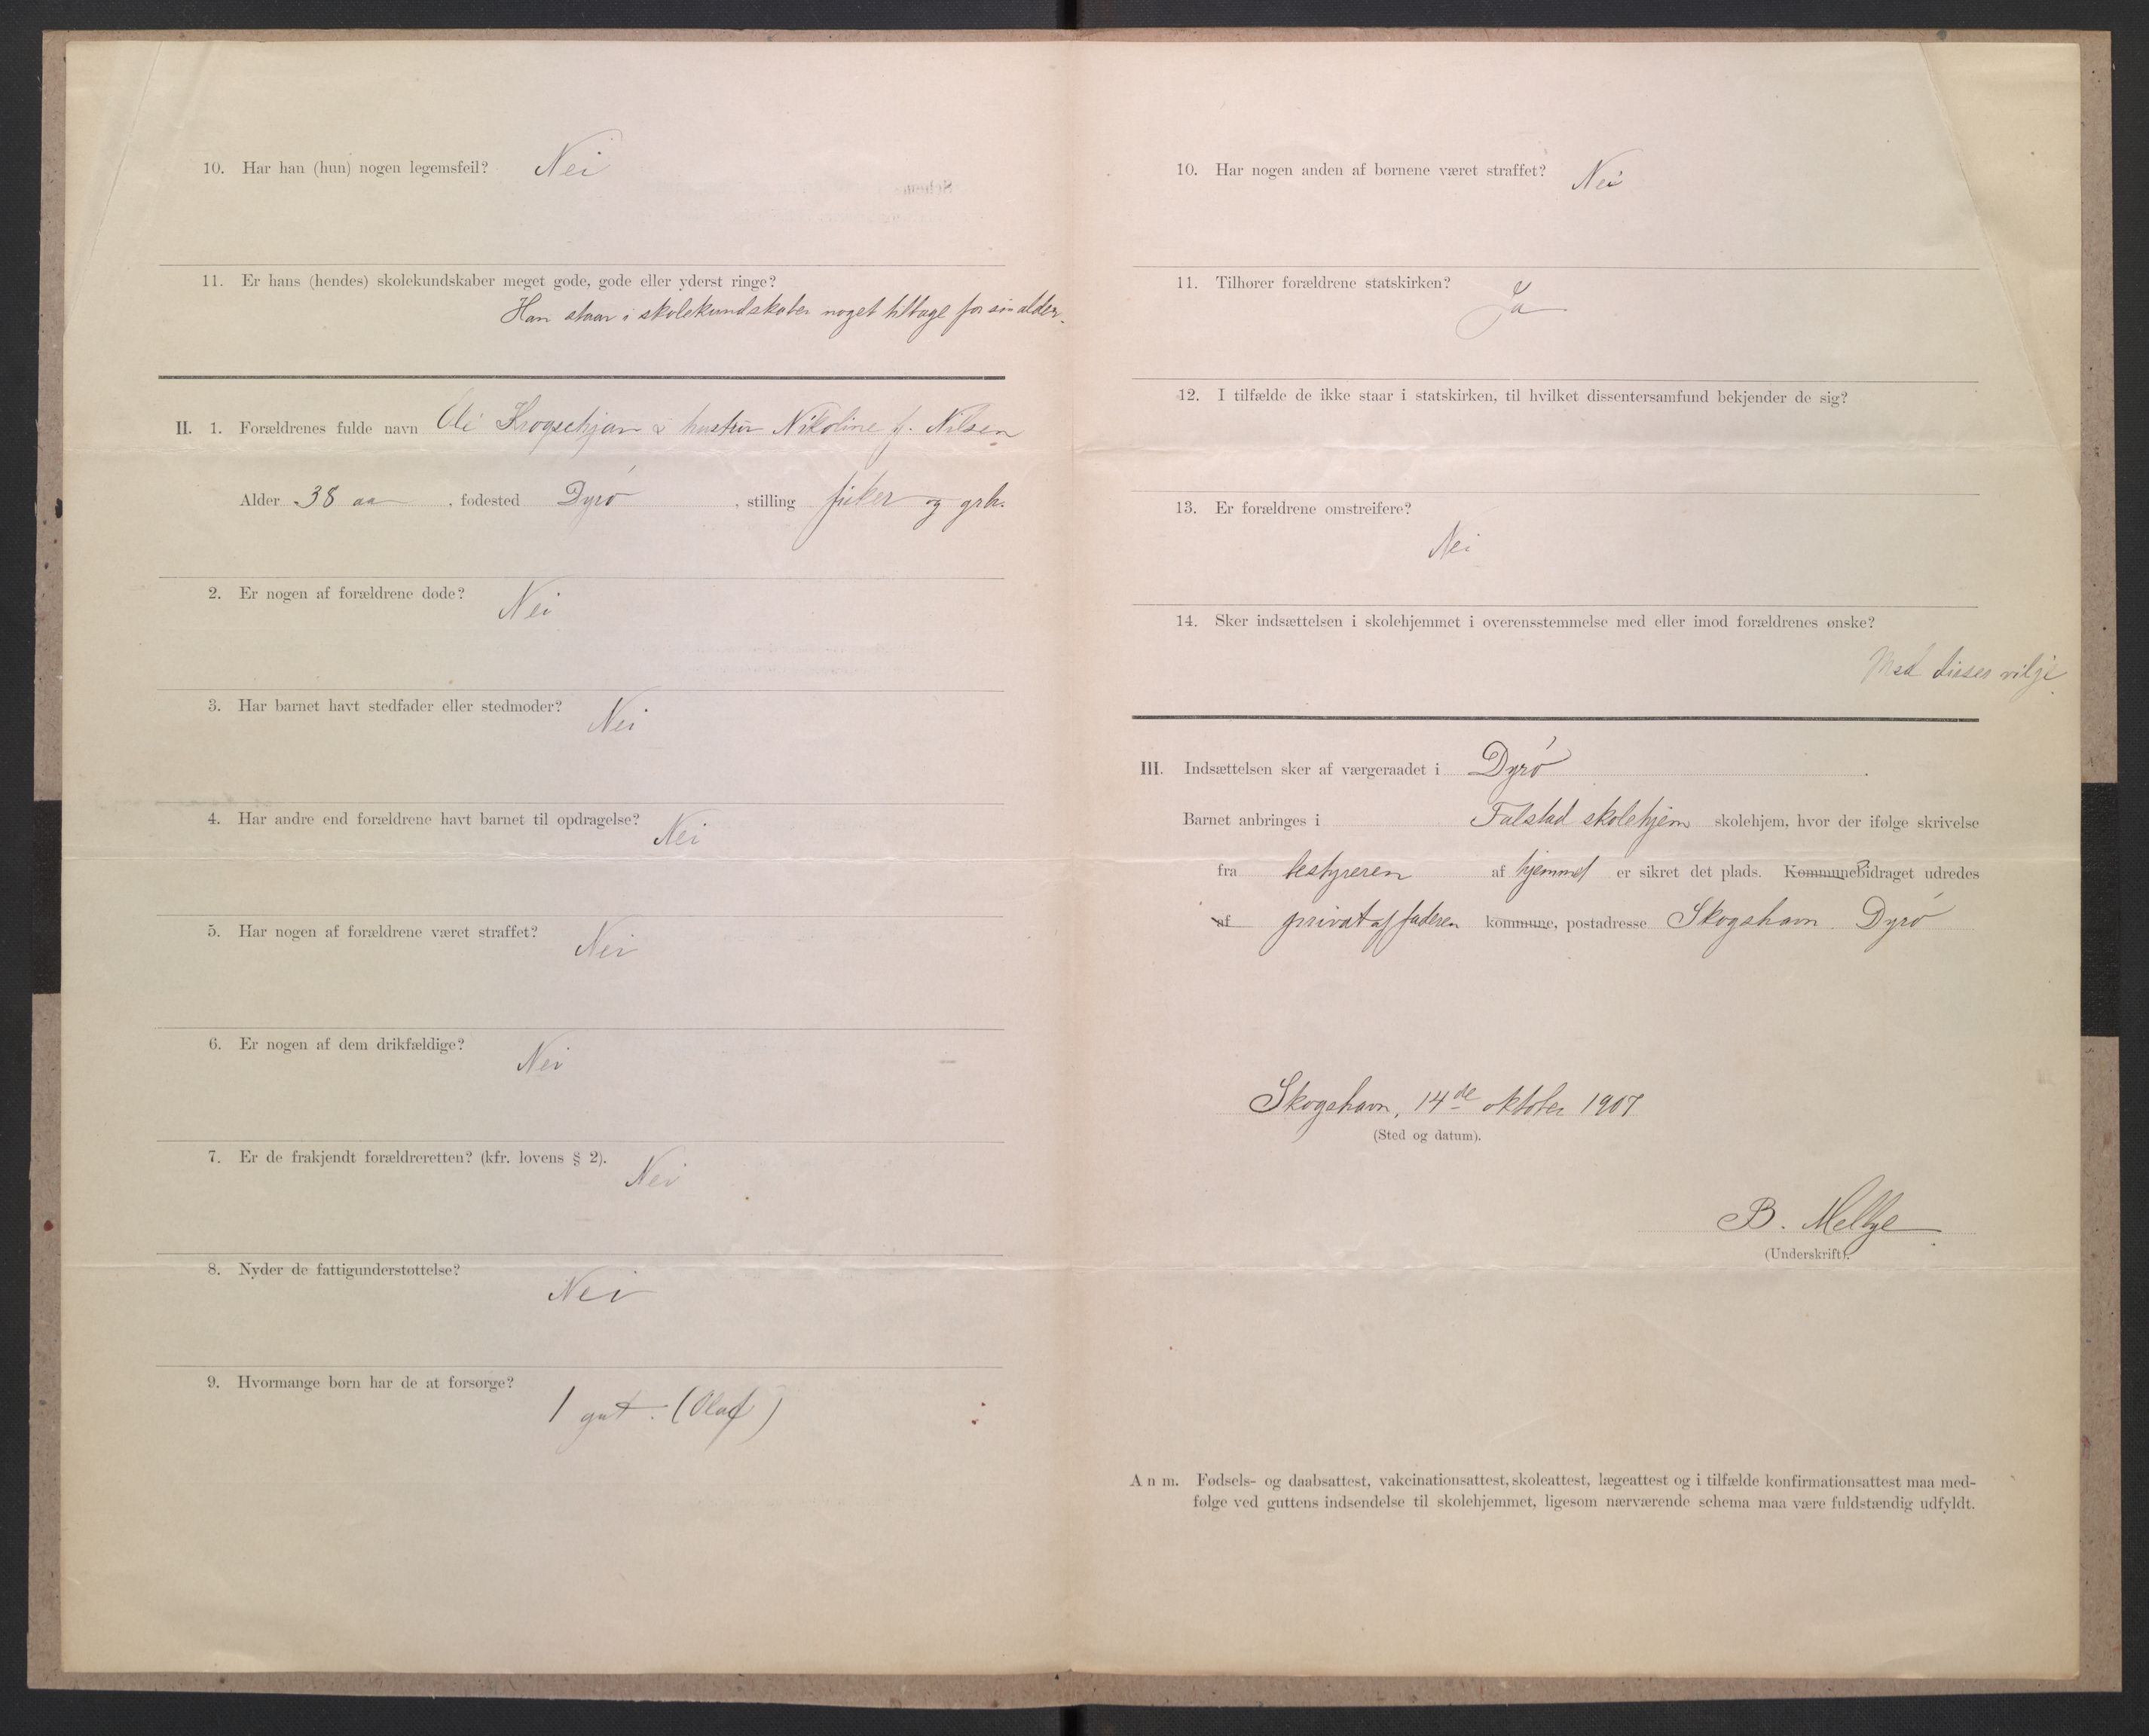 10. Har han (hun) nogen legemsfeil? Nei
11. Er hans (hendes) skolekundskaber meget gode, gode eller yderst ringe?
Han staar i skolekundskaber noget tilbage for sin alder.
II. 1. Forældrenes fulde navn Ole Krogsehjan & hustru Nikoline f. Nilsen
Alder 38 aa , fødested Dyrö , stilling fisker og grb.
2. Er nogen af forældrene døde? Nei
3. Har barnet havt stedfader eller stedmoder? Nei
4. Har andre end forældrene havt barnet til opdragelse? Nei
5. Har nogen af forældrene været straffet? Nei
6. Er nogen af dem drikfældige? Nei
7. Er de frakjendt forældreretten? (kfr. lovens § 2). Nei
8. Nyder de fattigunderstøttelse? Nei
9. Hvormange børn har de at forsørge?
1 gut. (Olaf)
10. Har nogen anden af børnene været straffet? Nei
11. Tilhører forældrene statskirken? Ja
12. I tilfælde de ikke staar i statskirken, til hvilket dissentersamfund bekjender de sig?
13. Er forældrene omstreifere?
Nei
14. Sker indsættelsen i skolehjemmet i overensstemmelse med eller imod forældrenes ønske?
Med disses vilje.
III. Indsættelsen sker af værgeraadet i Dyrö .
Barnet anbringes i Falstad skolehjem skolehjem, hvor der ifølge skrivelse
fra bestyreren af hjemmet er sikret det plads. KommuneBidraget udredes
af privat af faderen kommune, postadresse Skogshavn Dyrö
Skogshavn, 14de oktober 1907
(Sted og datum).
B. Melbye
(Underskrift).
Anm. Fødsels- og daabsattest, vakcinationsattest, skoleattest, lægeattest og i tilfælde konfirmationsattest maa med-
følge ved guttens indsendelse til skolehjemmet, ligesom nærværende schema maa være fuldstændig udfyldt.